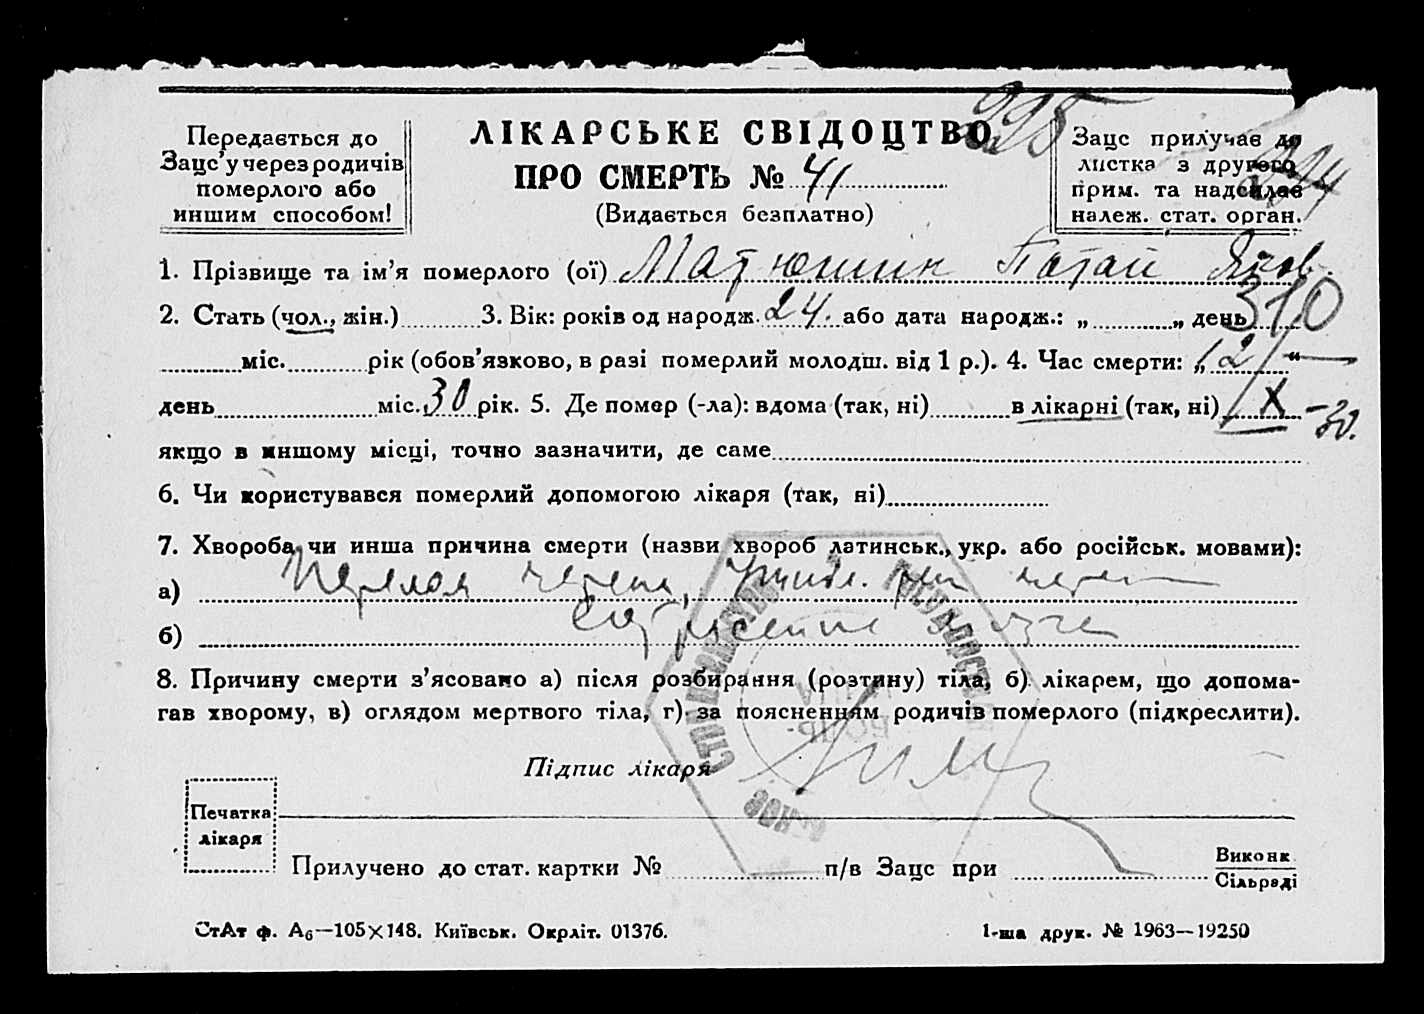 295
Передається до
Зацс'у через родичів
померлого або
иншим способом!
ЛІКАРСЬКЕ СВІДОЦТВО
ПРО СМЕРТЬ № 41
(Видається безплатно)
Зацс прилучає до
листка з другого
прим. та надсилає
належ. стат. орган.
1. Прізвище та ім'я померлого (ої)
310
2. Стать (чол., жін.) 3. Вік: років од народж. 24. або дата народж.: „ „ день
міс. рік (обов'язково, в разі померлий молодш. від 1 р.). 4. Час смерти: „ 12 “
день міс. 30 рік. 5. Де помер (-ла): вдома (так, ні) в лікарні (так, ні) X – 30.
якщо в иншому місці, точно зазначити, де саме
6. Чи користувався померлий допомогою лікаря (так, ні)
7. Хвороба, чи инша причина смерти (назви хвороб латинськ., укр. або російськ. мовами):
а) Перелом черепа,
б)
8. Причину смерти з'ясовано а) після розбирання (розтину) тіла, б) лікарем, що допома-
гав хворому, в) оглядом мертвого тіла, г) за поясненням родичів померлого (підкреслити).
Підпис лікаря
Печатка
лікаря
Прилучено до стат. картки № п/в Зацс при Виконк
Сільраді
СтАт ф. А6—105×148. Київськ. Окрліт. 01376.
1-ша друк. № 1963—19250